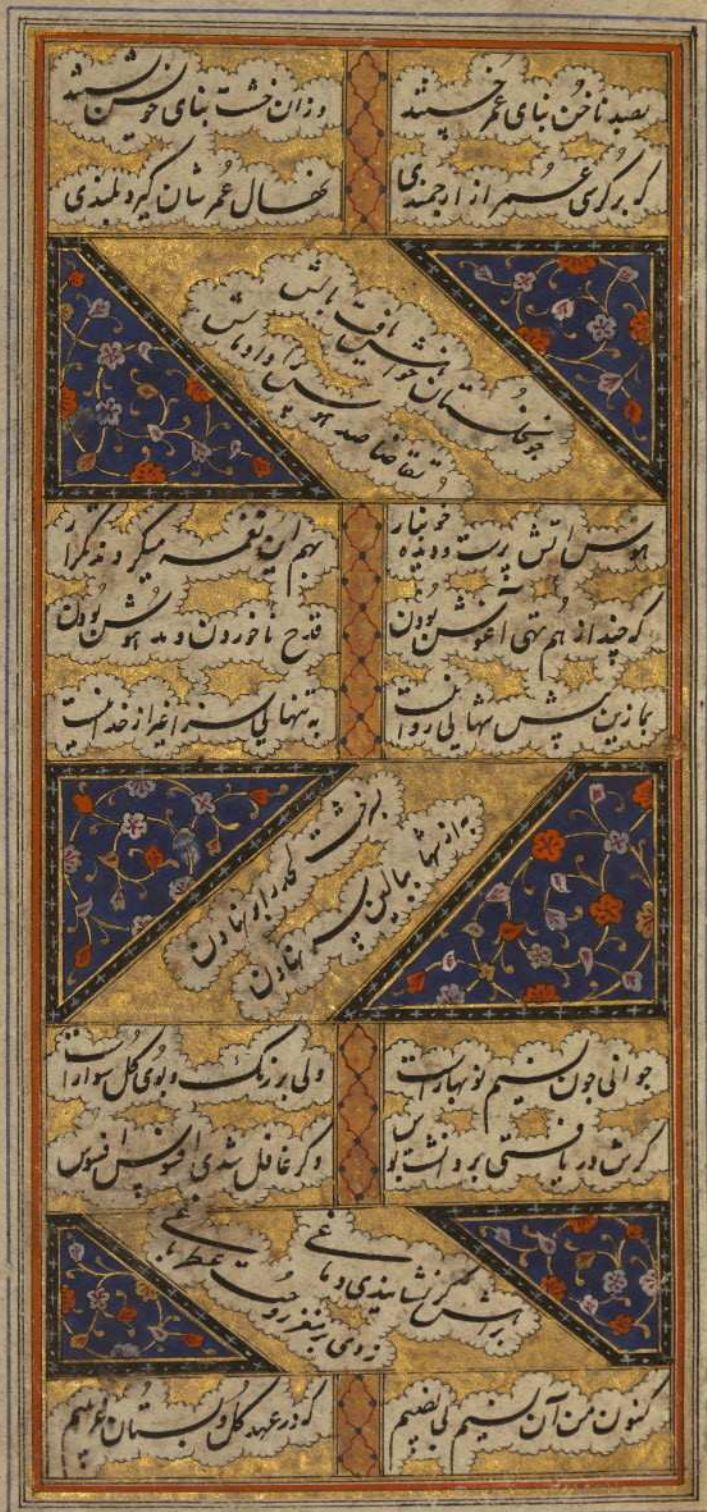 بصد ناخن بنای عمر خستند
وزان خشت بنای خویش بستند
که بر کرسی عمر از ارجمندی
نهال عمرشان گیرد بلندی
چو نخلستان خواهش یافت بالش
تقاضا صد هوس را داد مالش
هوس آتش پرست و دیده خونبار
بهم این نغمه میکردند تکرار
که چند از هم تهی آغوش بودن
قدح ناخوردن و مدهوش بودن
بما زین بیش تنهایی روا نیست
به تنهایی سزا غیر از خدا نیست
بر خشت لحد رابو نهادن
به از تنها ببالین سر نهادن
جوانی چون نسیم نوبهار است
ولی بر رنگ و بوی گل سوار است
گرش دریافتی بر دانشت بوس
وگر غافل شدی افسوس افسوس
براهش گر نشانیدی دماغی
زدی بر مغز روحت عطر باغی
کنون من آن نسیم بی نصیبم
که در عهد گل و بستان غریبم